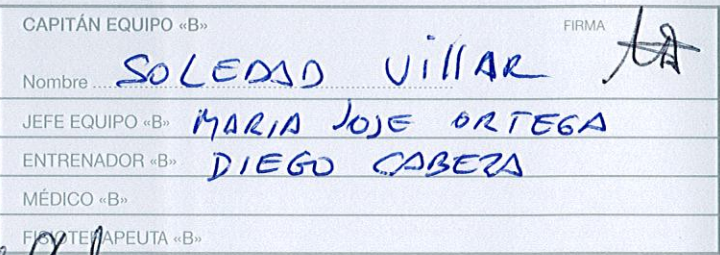 CAPITÁN EQUIPO «B» FIRMA
Nombre SOLEDAD VillAR
JEFE EQUIPO «B» MARIA JOSE ORTEGA
ENTRENADOR «B» DIEGO CABEZA
MÉDICO «B»
FISIOTERAPEUTA «B»